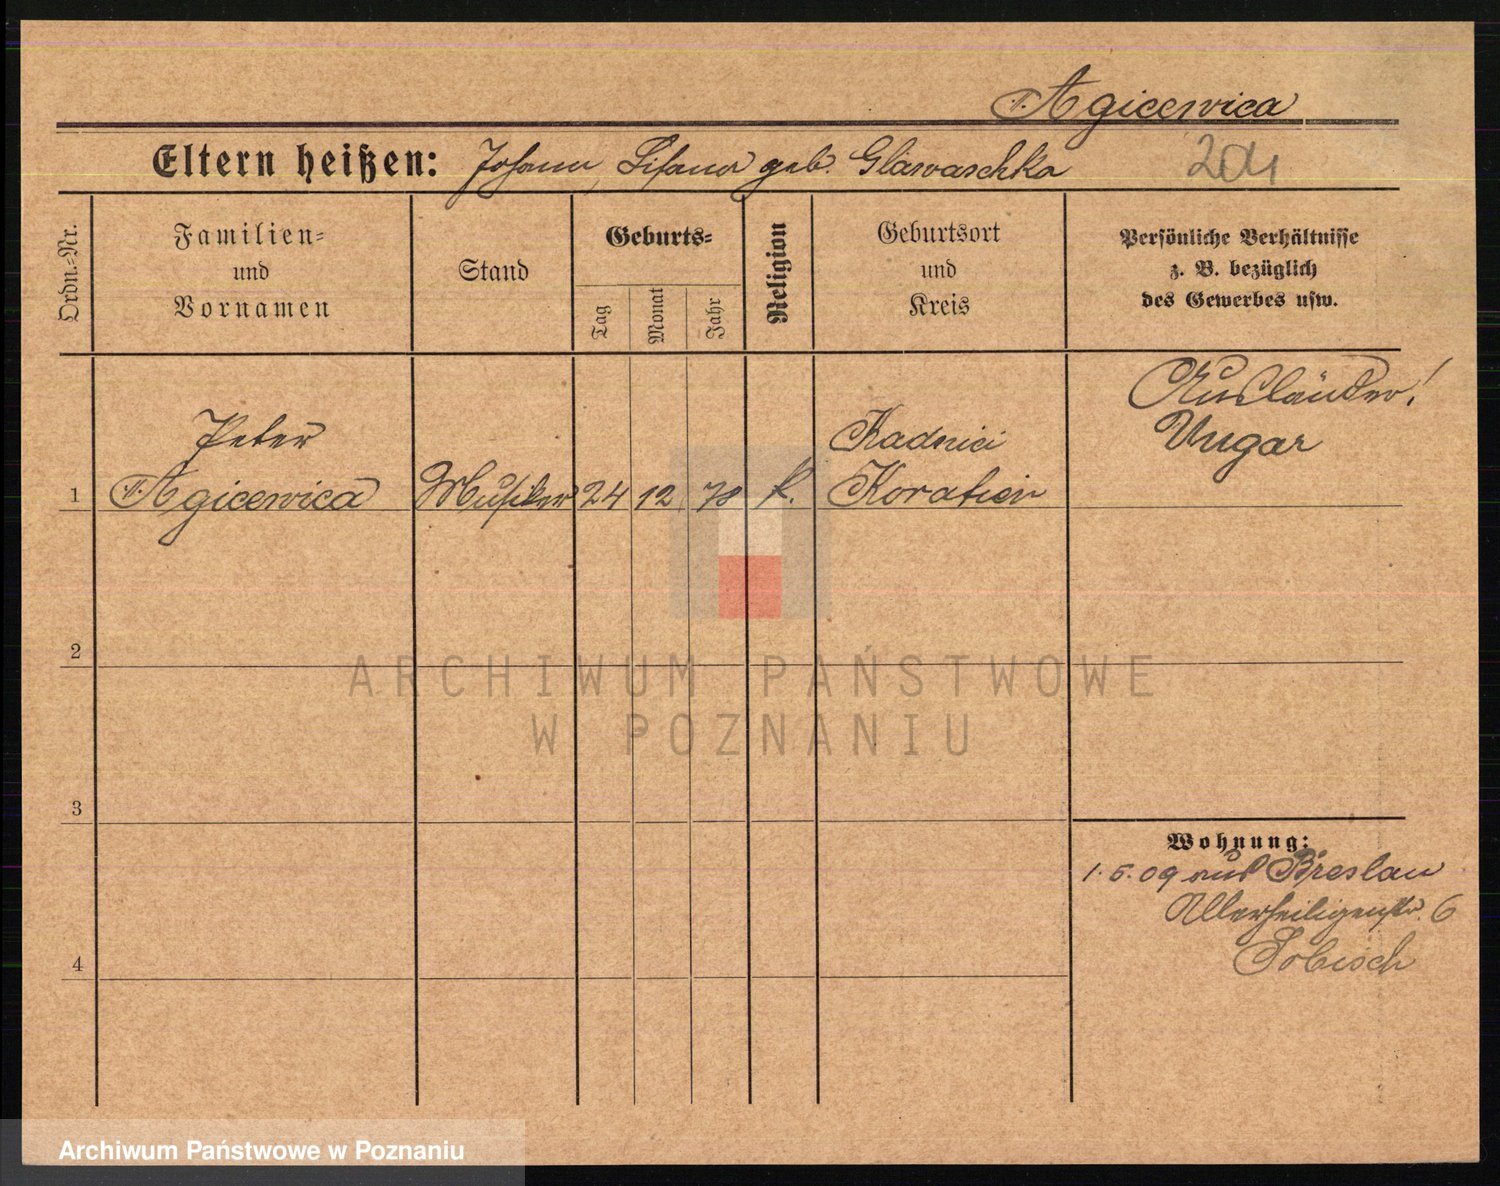 Agicewica
Eltern heißen: Johann, Lisana geb. Glawaschka
204
Ordn.-Nr.
Familien-
und
Vornamen
Stand
Geburts-
Tag
Monat
Jahr
Religion
Geburtsort
und
Kreis
Persönliche Verhältnisse
z. B. bezüglich
des Gewerbes usw.
Ausländer!
Ungar
Peter
Kadnici
1 Agicewica Musiker 24 12 78 k. Koratien
2
ARCHIWUM PAŃSTWOWE
W POZNANIU
3
Wohnung:
1.5.09 aus Breslau
Allerheiligenstr. 6
Sobisch
4
Archiwum Państwowe w Poznaniu